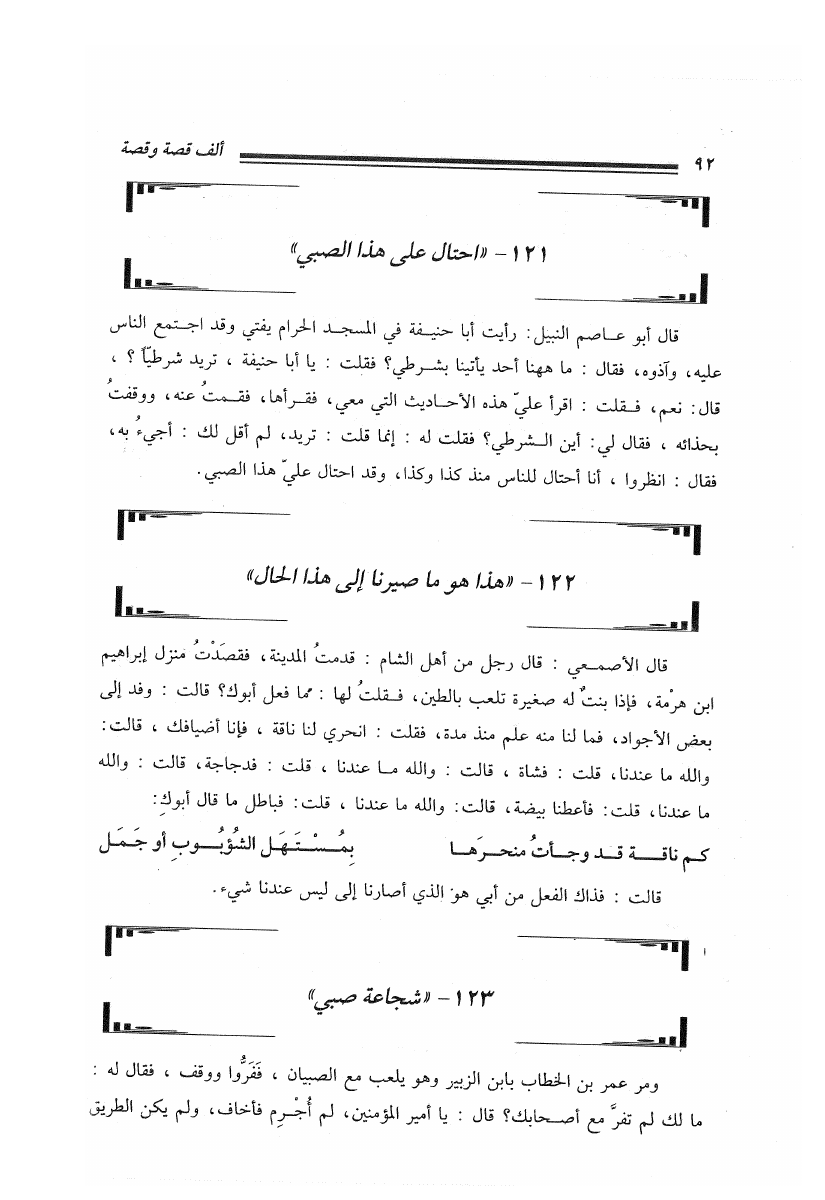 ٩٢ ألف قصة وقصة
١٢١- «احتال على هذا الصبي»
قال أبو عـاصم النبيل: رأيت أبا حنيـفة في المسجـد الحرام يفتي وقد اجـتمع الناس
عليه، وآذوه، فقال : ما ههنا أحد يأتينا بشـرطي؟ فقلت : يا أبا حنيفة ، تريد شرطيّاً ؟ ،
قال: نعم، فـقلت : اقرأ عليّ هذه الأحـاديث التي معي، فقـرأها، فقـمتُ عنه، ووقفتُ
بحذائه ، فقال لي: أين الـشرطي؟ فقلت له : إنما قلت : تريد، لم أقل لك : أجيءُ به،
فقال : انظروا ، أنا أحتال للناس منذ كذا وكذا، وقد احتال عليّ هذا الصبي.
١٢٢- «هذا هو ما صيرنا إلى هذا الحال»
قال الأصمـعي : قال رجل من أهل الشام : قدمتُ المدينة، فقصَدْتُ منزل إبراهيم
ابن هرْمة، فإذا بنتٌ له صغيرة تلعب بالطين، فـقلتُ لها : مما فعل أبوك؟ قالت : وفد إلى
بعض الأجواد، فما لنا منه علم منذ مدة، فقلت : انحري لنا ناقة ، فإنا أضيافك ، قالت:
والله ما عندنا، قلت : فشاة ، قالت : والله مـا عندنا ، قلت : فدجاجة، قالت : والله
ما عندنا، قلت: فأعطنا بيضة، قالت: والله ما عندنا ، قلت: فباطل ما قال أبوكِ:
كـم ناقـــة قـد وجـأتُ منحـرَهـا بِمُـسْـتَـهَـل الشُؤبُـوبِ أو جَـمَـل
قالت : فذاك الفعل من أبي هو الذي أصارنا إلى ليس عندنا شيء.
١٢٣- «شجاعة صبي»
ومر عمر بن الخطاب بابن الزبير وهو يلعب مع الصبيان ، فَفَرُّوا ووقف ، فقال له :
ما لك لم تفرَّ مع أصـحابك؟ قال : يا أمير المؤمنين، لم أُجْـرِم فأخاف، ولم يكن الطريق